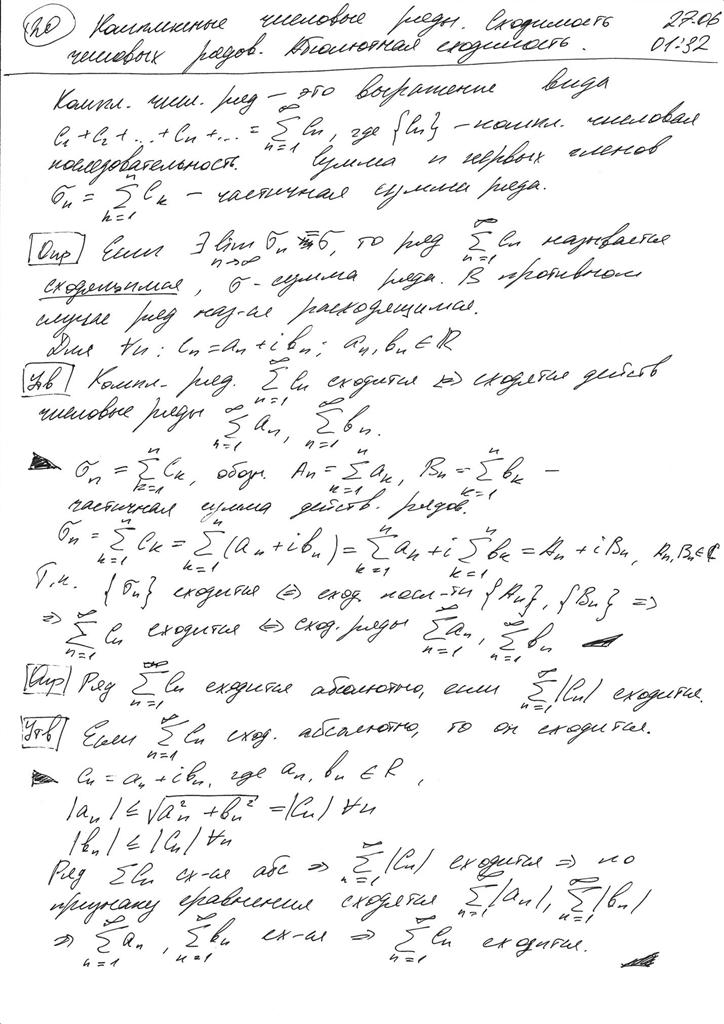 (20) Комплексные числовые ряды. Сходимость 27.06
числовых рядов. Абсолютная сходимость. 01:32
Компл. числ. ряд – это выражение вида
c₁+c₂+...+cₙ+... = ∑_{n=1}^{∞} cₙ, где {cₙ} – компл. числовая
последовательность. Сумма n первых членов
σₙ = ∑_{k=1}^{n} cₖ – частичная сумма ряда.
[Опр] Если ∃ lim_{n→∞} σₙ = σ, то ряд ∑_{n=1}^{∞} cₙ называется
сходящимся, σ - сумма ряда. В противном
случае ряд наз-ся расходящимся.
Для ∀n: cₙ = aₙ + i bₙ; aₙ, bₙ ∈ ℝ
[Утв] Компл. ряд. ∑_{n=1}^{∞} cₙ сходится ⇔ сходятся действ
числовые ряды ∑_{n=1}^{∞} aₙ, ∑_{n=1}^{∞} bₙ.
σₙ = ∑_{k=1}^{n} cₖ, обозн. Aₙ = ∑_{k=1}^{n} aₖ, Bₙ = ∑_{k=1}^{n} bₖ –
частичная сумма действ. рядов.
σₙ = ∑_{k=1}^{n} cₖ = ∑_{k=1}^{n} (aₙ + i bₙ) = ∑_{k=1}^{n} aₖ + i ∑_{k=1}^{n} bₖ = Aₙ + i Bₙ, Aₙ, Bₙ ∈ ℂ
Т.к. {σₙ} сходится ⇔ сход. посл-ти {Aₙ}, {Bₙ} ⇒
⇒ ∑_{n=1}^{∞} cₙ сходится ⇔ сход. ряды ∑_{n=1}^{∞} aₙ, ∑_{n=1}^{∞} bₙ
[Опр] Ряд ∑_{n=1}^{∞} cₙ сходится абсолютно, если ∑_{n=1}^{∞} |cₙ| сходится.
[Утв] Если ∑_{n=1}^{∞} cₙ сход. абсолютно, то он сходится.
cₙ = aₙ + i bₙ, где aₙ, bₙ ∈ R,
|aₙ| ≤ √(aₙ² + bₙ²) = |cₙ| ∀n
|bₙ| ≤ |cₙ| ∀n
Ряд ∑cₙ сх-ся абс ⇒ ∑_{n=1}^{∞} |cₙ| сходится ⇒ по
признаку сравнения сходятся ∑_{n=1}^{∞} |aₙ|, ∑_{n=1}^{∞} |bₙ|
⇒ ∑_{n=1}^{∞} aₙ, ∑_{n=1}^{∞} bₙ сх-ся ⇒ ∑_{n=1}^{∞} cₙ сходится.